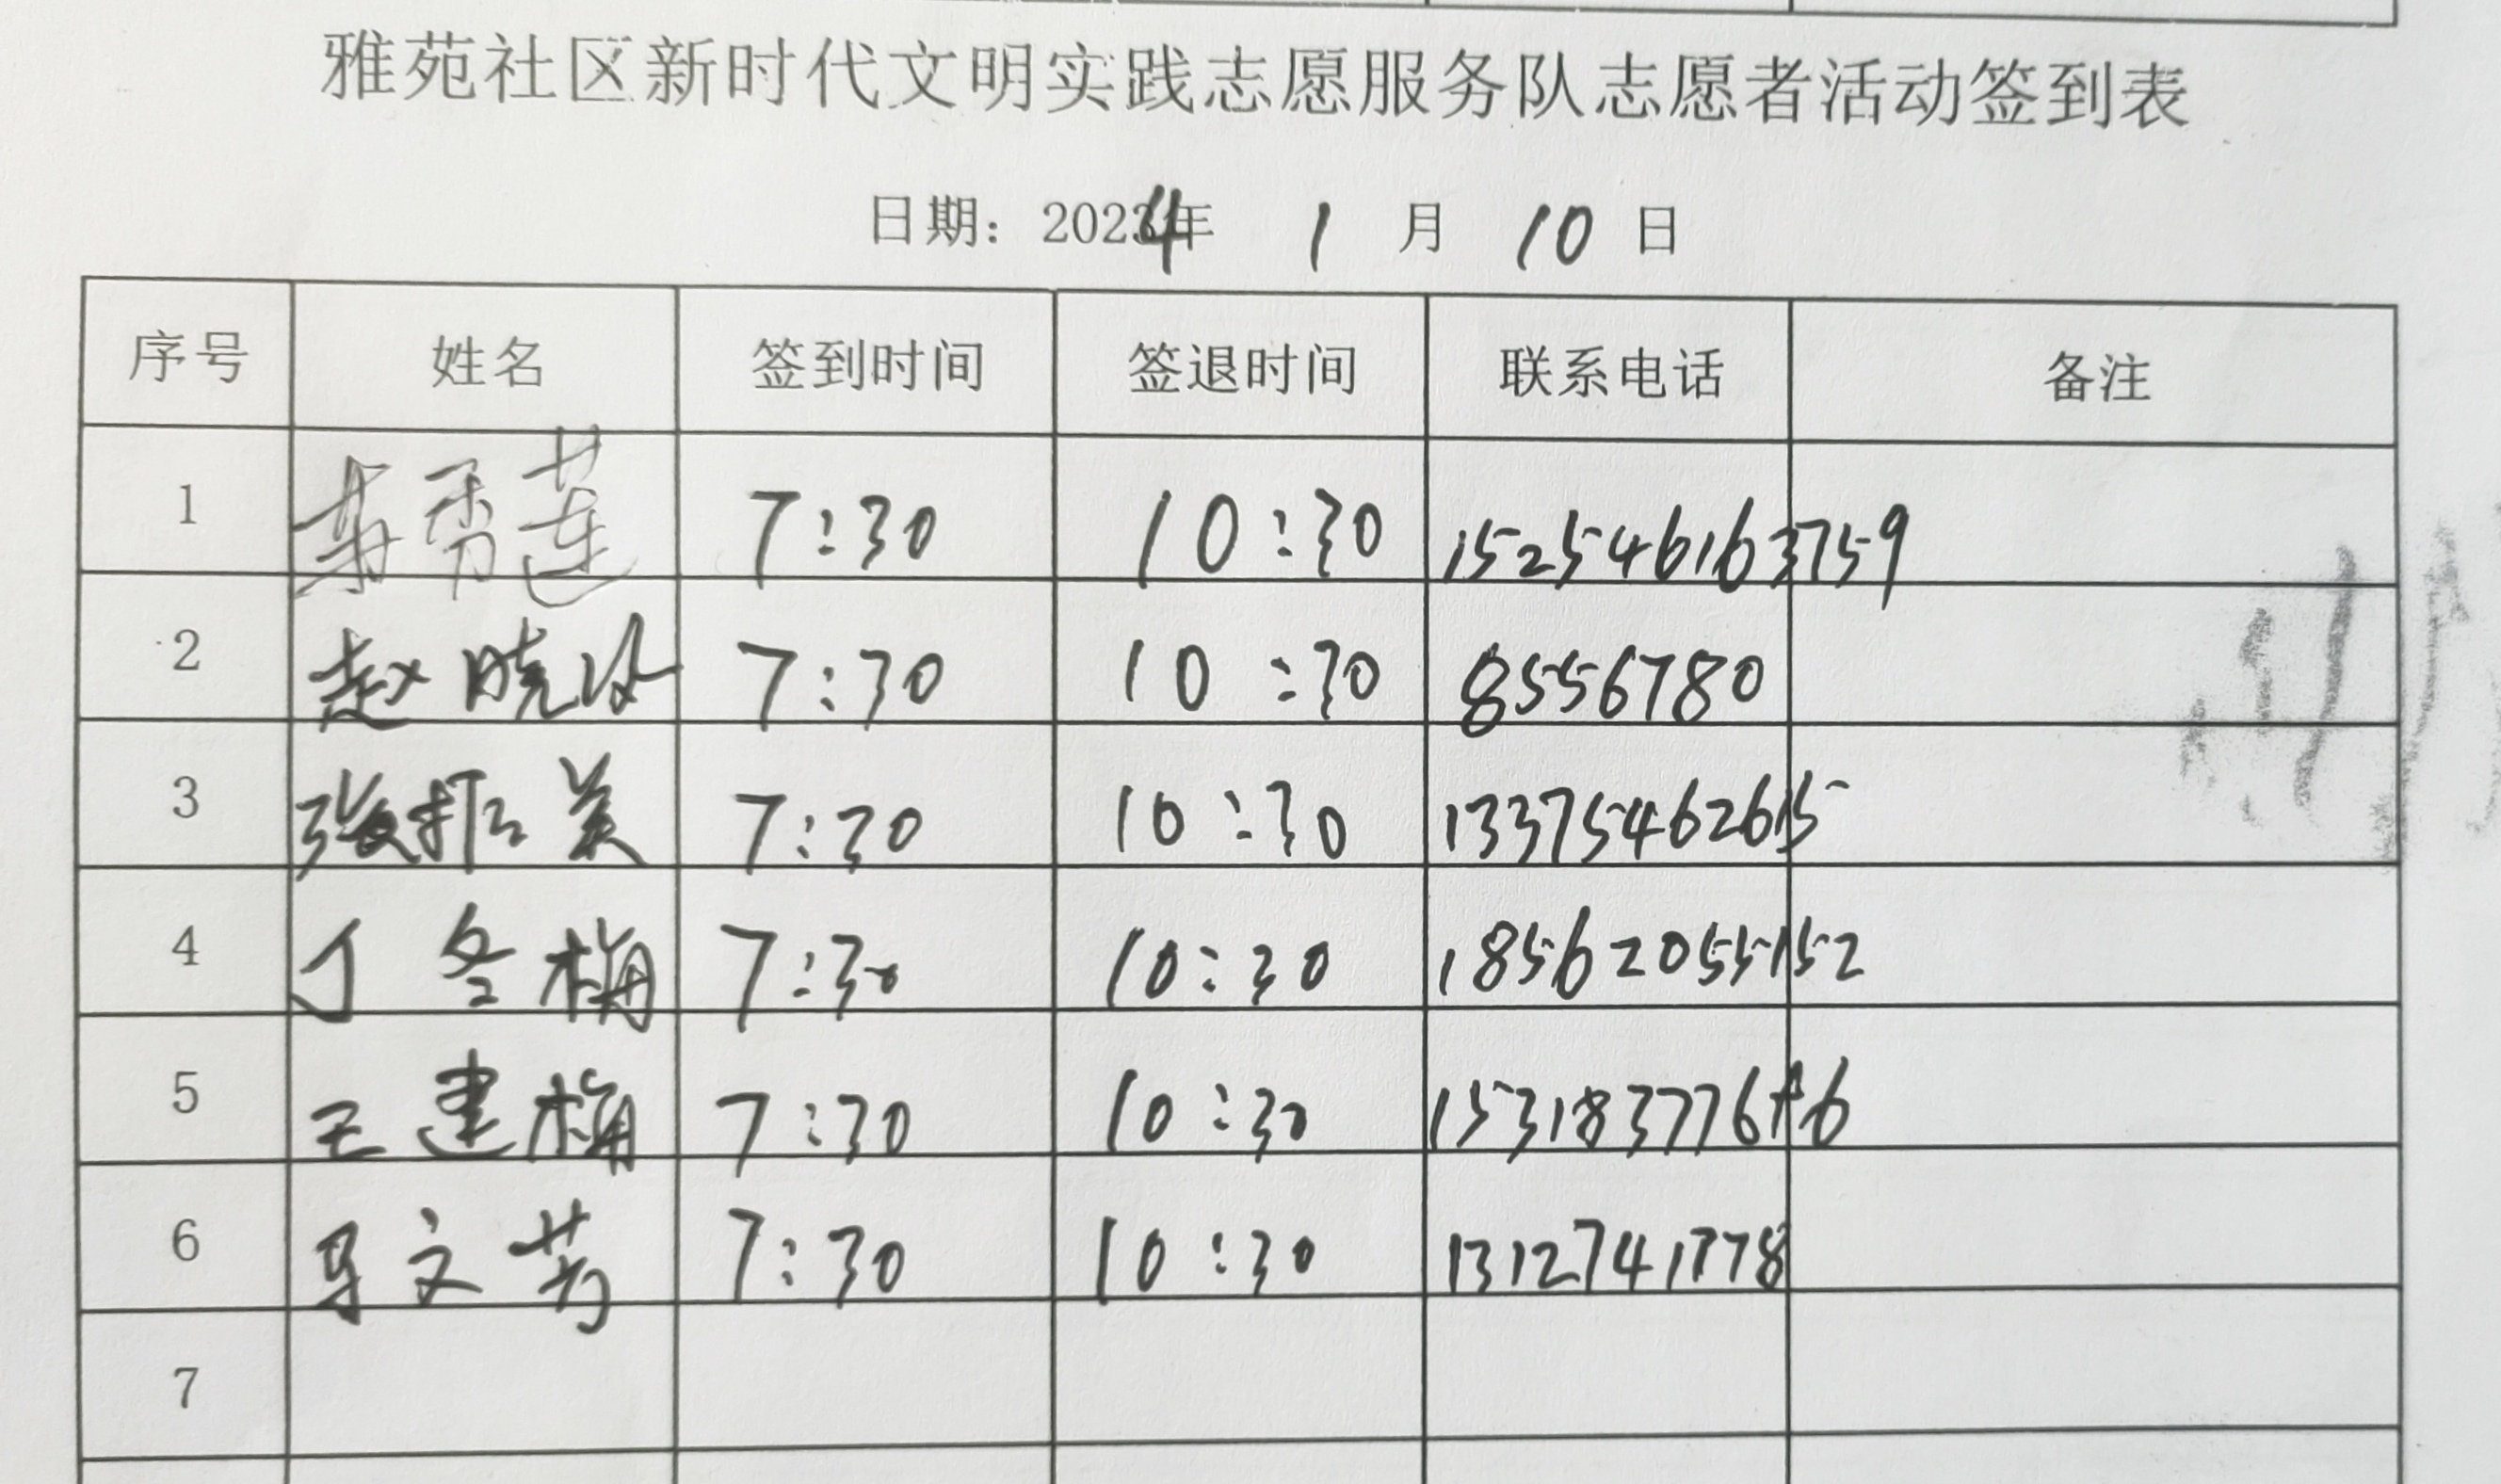 雅苑社区新时代文明实践志愿服务队志愿者活动签到表
日期：2024年 1 月 10 日
序号 姓名 签到时间 签退时间 联系电话 备注
1 秀莲 7:30 10:30 152546163759
2 赵晓 7:30 10:30 8556780
3 张振美 7:30 10:30 13375462615
4 丁冬梅 7:30 10:30 18562055152
5 王建梅 7:30 10:30
6 马文芳 7:30 10:30 13127411778
7